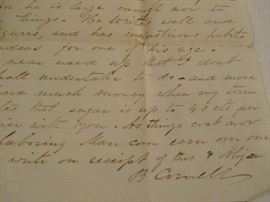 for he is large enough now to
things. He writes well and
figures, and has industrious habits
for one of his age.
near used up that I dont
shall undertake to do and more
have much money when any
that sugar is up to 42 cts per
with you. As things cost now
laboring Man can earn
write on receipt of this &
B Cornell